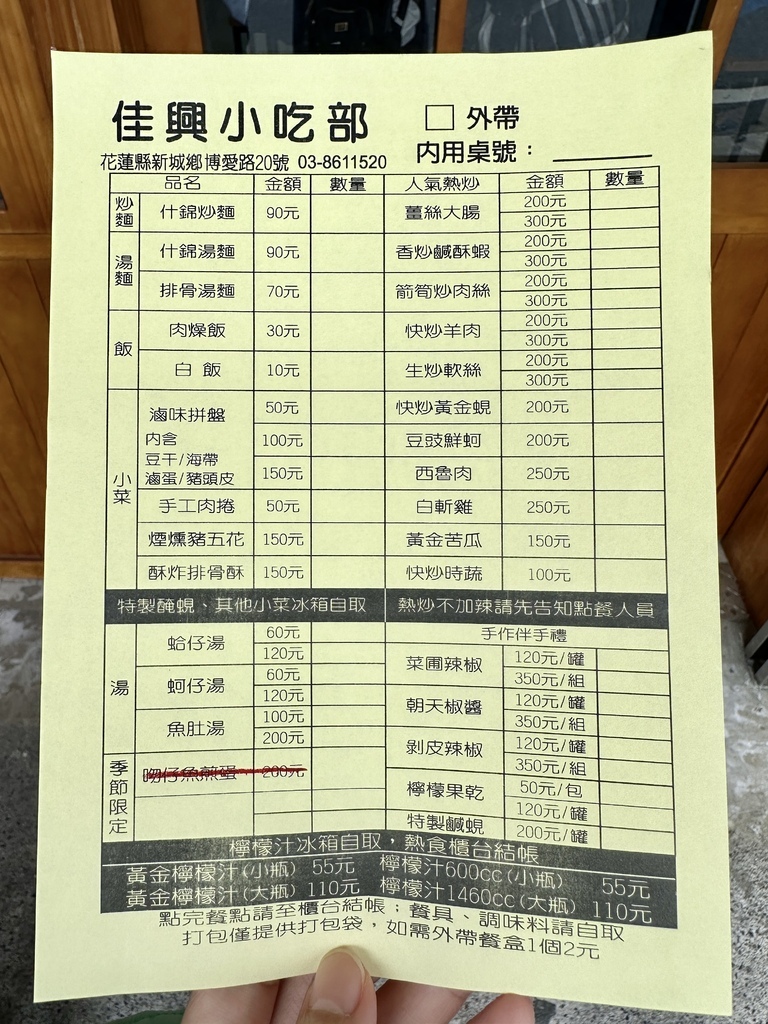 佳興小吃部
□ 外帶
花蓮縣新城鄉博愛路20號 03-8611520
內用桌號：
品名 金額 數量 人氣熱炒 金額 數量
炒麵 什錦炒麵 90元
湯麵 什錦湯麵 90元
排骨湯麵 70元
飯 肉燥飯 30元
白飯 10元
小菜 滷味拼盤 50元
內含 100元
豆干/海帶
滷蛋/豬頭皮 150元
手工肉捲 50元
煙燻豬五花 150元
酥炸排骨酥 150元
薑絲大腸 200元
300元
香炒鹹酥蝦 200元
300元
箭筍炒肉絲 200元
300元
快炒羊肉 200元
300元
生炒軟絲 200元
300元
快炒黃金蜆 200元
豆豉鮮蚵 200元
西魯肉 250元
白斬雞 250元
黃金苦瓜 150元
快炒時蔬 100元
特製醃蜆、其他小菜冰箱自取
熱炒不加辣請先告知點餐人員
湯 蛤仔湯 60元
120元
蚵仔湯 60元
120元
魚肚湯 100元
200元
季節限定 吻仔魚煎蛋 200元
手作伴手禮
菜圃辣椒 120元/罐
350元/組
朝天椒醬 120元/罐
350元/組
剝皮辣椒 120元/罐
350元/組
檸檬果乾 50元/包
120元/罐
特製鹹蜆 200元/罐
檸檬汁冰箱自取，熱食櫃台結帳
黃金檸檬汁(小瓶) 55元 檸檬汁600cc(小瓶) 55元
黃金檸檬汁(大瓶) 110元 檸檬汁1460cc(大瓶) 110元
點完餐點請至櫃台結帳；餐具、調味料請自取
打包僅提供打包袋，如需外帶餐盒1個2元